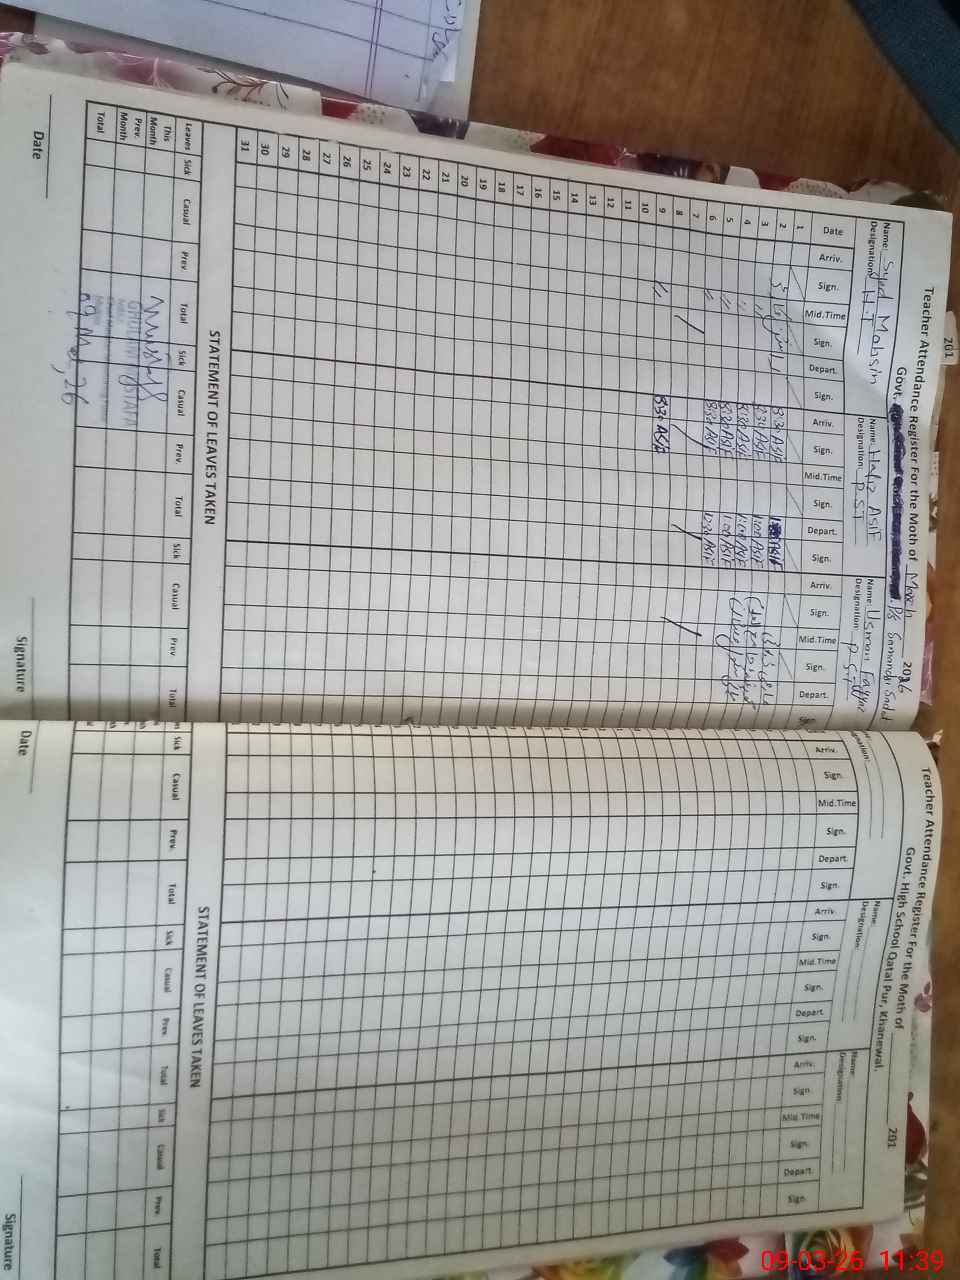 Teacher Attendance Register For the Moth of March 2026
Govt. P/S
Name: Syed Mohsin
Designation: H.T
Name: Hafiz ASIF
Designation: P.S.T
Name: Usman
Designation: P.S.T
Date Arriv. Sign. Mid.Time Sign. Depart. Sign. Arriv. Sign. Mid.Time Sign. Depart. Sign. Arriv. Sign. Mid.Time Sign. Depart. Sign
1
2 8:30 ASIF ASIF
3 8:30 ASIF 1:00 ASIF
4 8:30 ASIF 1:00 ASIF
5 8:30 ASIF 1:00 ASIF
6 8:30 ASIF 12:30 ASIF
7
8
9 8:30 ASIF
10
11
12
13
14
15
16
17
18
19
20
21
22
23
24
25
26
27
28
29
30
31
STATEMENT OF LEAVES TAKEN
Leaves Sick Casual Prev. Total Sick Casual Prev. Total Sick Casual Prev Total
This Month
Prev. Month
Total
GHULAM MUSTAFA
09 Mar, 26
Date
Signature
201
Teacher Attendance Register For the Moth of 201
Govt. High School Qatal Pur, Khanewal.
Name:
Designation:
Name:
Designation:
Arriv. Sign. Mid.Time Sign. Depart. Sign. Arriv. Sign. Mid.Time Sign. Depart. Sign. Arriv. Sign. Mid.Time Sign. Depart. Sign.
STATEMENT OF LEAVES TAKEN
Sick Casual Prev. Total Sick Casual Prev. Total Sick Casual Prev. Total
Date
Signature
09-03-26 11:39